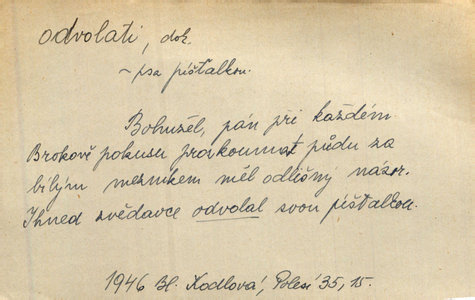 odvolati, dok.
~ psa píšťalkou.
Bohužel, pán při každém
Brokově pokusu prozkoumat půdu za
bílým mezníkem měl odlišný názor.
Ihned zvědavce odvolal svou píšťalkou.
1946 Bl. Kodlová, Polesí 35, 15.